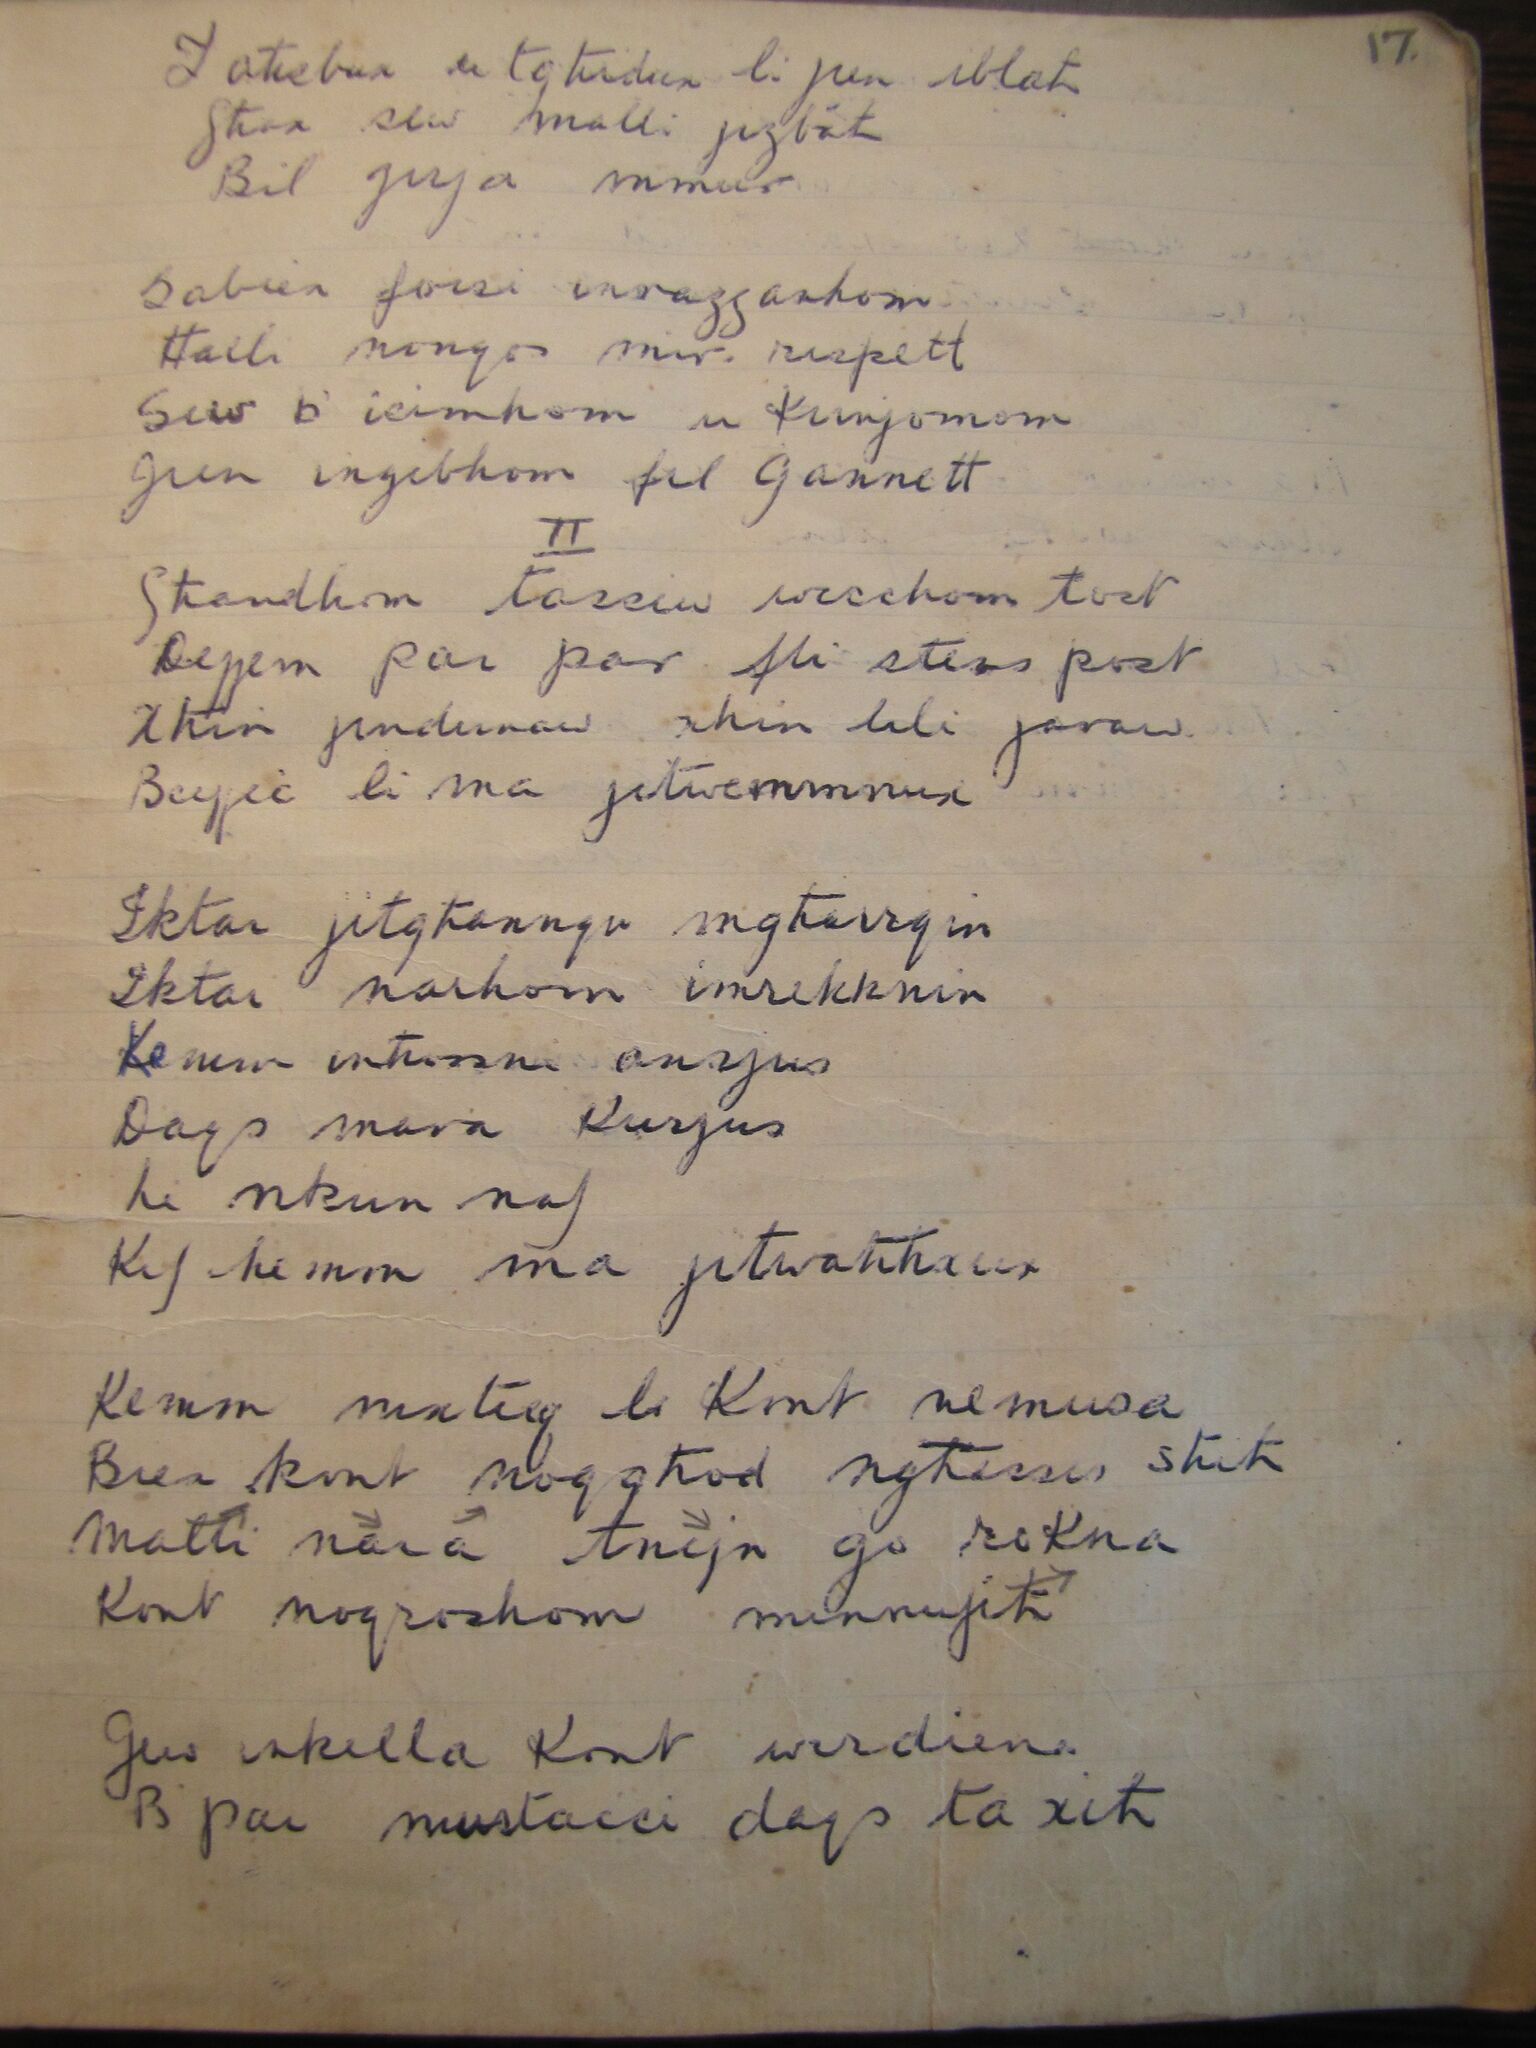 17.
Taħsbux u tgħidux li jien iblah
Għax sew malli jiżbħħ
Bil ġirja mmur
Sabiex forsi inrażżanhom
Ħalli nongos mir. rispett
Sew b'icimhom u Kunjomom
Jien ingibhom fil Gazzett
II
Għandhom tassew wicchom tost
Dejjem par par fli stess post
Xħin jindunaw xħin lili jaraw
Beżżiċ li ma jitwemmnux
Iktar jitgħannqu mgħaxxqin
Iktar narhom imrekknin
Kemm inħossni anzjus
Daqs mara Kurjus
hi nkun naf
Kif hemm ma jitwaħħxux
Kemm nixtieq li Kont nemusa
Biex kont noqgħod ngħasses sħiħ
Malli nara tnejn go rokna
Kont noqroshom minnufih
Jew inkella Kont wirdiena
B'par mustacci daqs ta xiħ